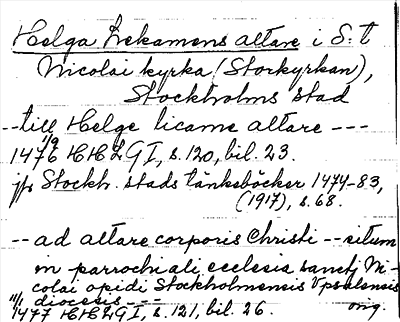 Helga Lekamens altare i S:t
Nicolai kyrka (Storkyrkan),
Stockholms stad
--till Helge licame altare ---
1/9
1476 HHLG I, s. 120, bil. 23.
jfr Stockh. stads tänkeböcker 1474-83,
(1917), s. 68.
-- ad altare corporis Christi -- situm
in parrochiali ecclesia sancti Ni-
colai opidi Stockholmensis Vpsalensis
diocesis ---
1477 HHLG I, s. 121, bil. 26. orig.